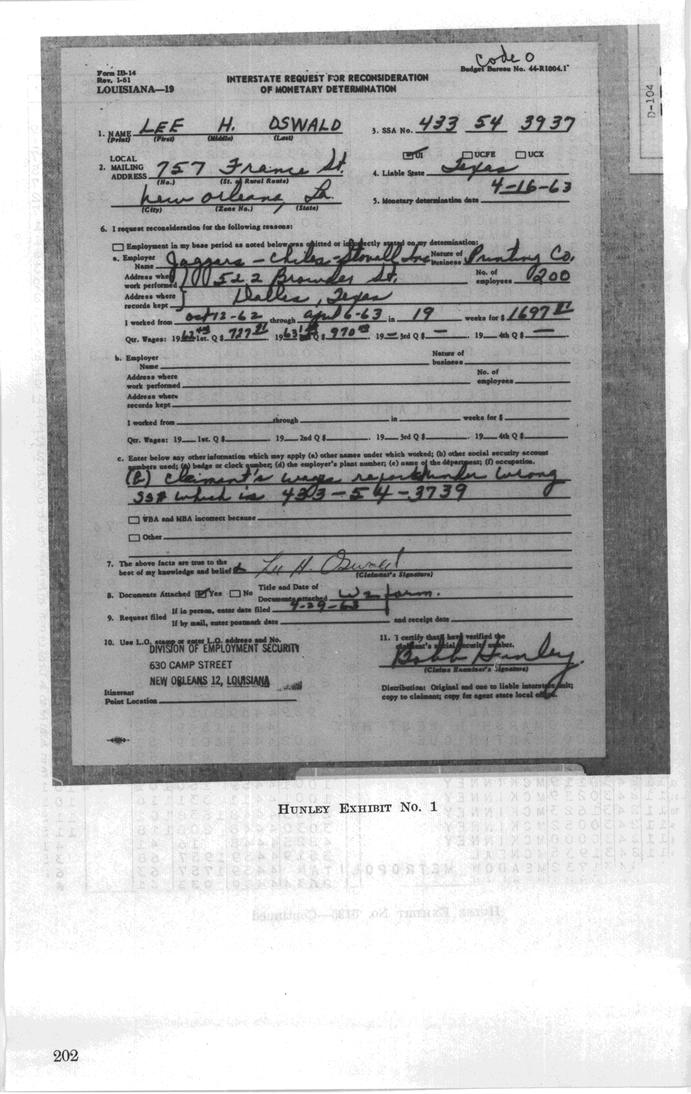 code 0
Form IB-14
Rev. 1-61
LOUISIANA—19
INTERSTATE REQUEST FOR RECONSIDERATION
OF MONETARY DETERMINATION
Budget Bureau No. 44-R1004.1
D-104
1. NAME LEE H. OSWALD
(Print) (First) (Middle) (Last)
3. SSA No. 433 54 3937
LOCAL
2. MAILING
ADDRESS 757 France St.
(No.) (St. or Rural Route)
UI UCFE UCX
4. Liable State Texas
New Orleans, La.
(City) (Zone No.) (State)
5. Monetary determination date 4-16-63
6. I request reconsideration for the following reasons:
Employment in my base period as noted below was omitted or incorrectly stated on my determination:
a. Employer
Name Jaggers - Chiles - Stovall Inc
Nature of
business Printing Co.
Address where
work performed 522 Browder St.
No. of
employees 200
Address where
records kept Dallas, Texas
I worked from Oct 12-62 through April 6-63 in 19 weeks for $ 1697
Qtr. Wages: 19 62 1st. Q $ 727 19 63 Q $ 970 19 — 3rd Q $ — 19 — 4th Q $ —
b. Employer
Name
Nature of
business
Address where
work performed
No. of
employees
Address where
records kept
I worked from through in weeks for $
Qtr. Wages: 19 1st. Q $ 19 2nd Q $ 19 3rd Q $ 19 4th Q $
c. Enter below any other information which may apply (a) other names under which worked; (b) other social security account
numbers used; (c) badge or clock number; (d) the employer's plant number; (e) name of the department; (f) occupation.
(b) claimant's wages report under wrong
SS# which is 433-54-3739
WBA and MBA incorrect because
Other
7. The above facts are true to the
best of my knowledge and belief Lee H. Oswald
(Claimant's Signature)
8. Documents Attached Yes No
Title and Date of
Documents attached W2 form.
9. Request filed
If in person, enter date filed 4-29-63
If by mail, enter postmark date and receipt date
10. Use L.O. stamp or enter L.O. address and No.
DIVISION OF EMPLOYMENT SECURITY
630 CAMP STREET
NEW ORLEANS 12, LOUISIANA
Itinerant
Point Location
11. I certify that I have verified the
claimant's social security number.
Bobb Hunley
(Claims Examiner's Signature)
Distribution: Original and one to liable interstate unit;
copy to claimant; copy for agent state local office.
HUNLEY EXHIBIT NO. 1
202